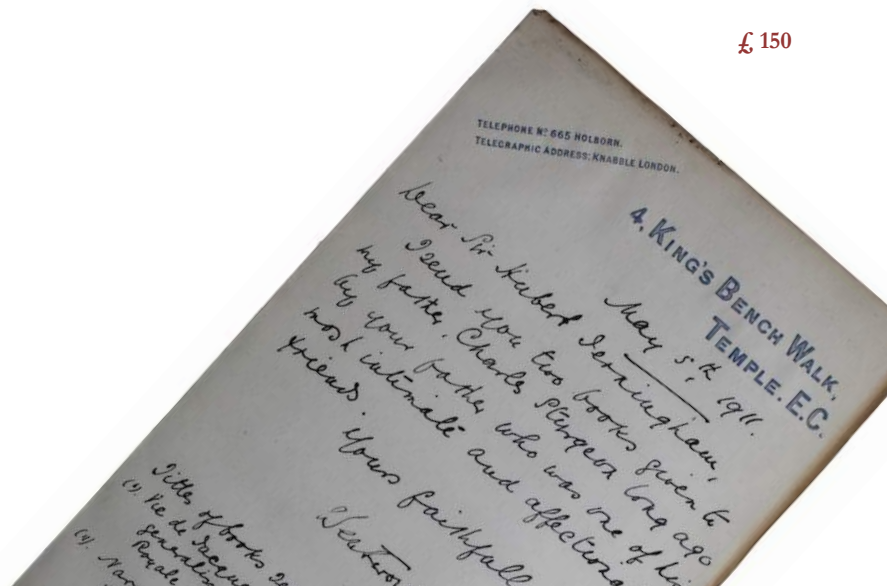 £ 150
TELEPHONE Nº 665 HOLBORN.
TELEGRAPHIC ADDRESS: KNABBLE LONDON.
4, KING'S BENCH WALK,
TEMPLE. E.C.
May 5th 1911.
Dear Sir Hubert Jerningham,
I send you two books given to
my father, Charles Sturgeon long ago
by your father who was one of his
most intimate and affectiona
friends.
Yours faithfull
Titles of books
(1). Vie de Jacque
Royale